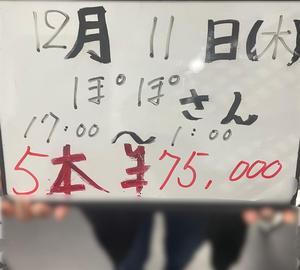 12月 11日(木)
ぽぽさん
17:00〜1:00
5本 ¥75,000